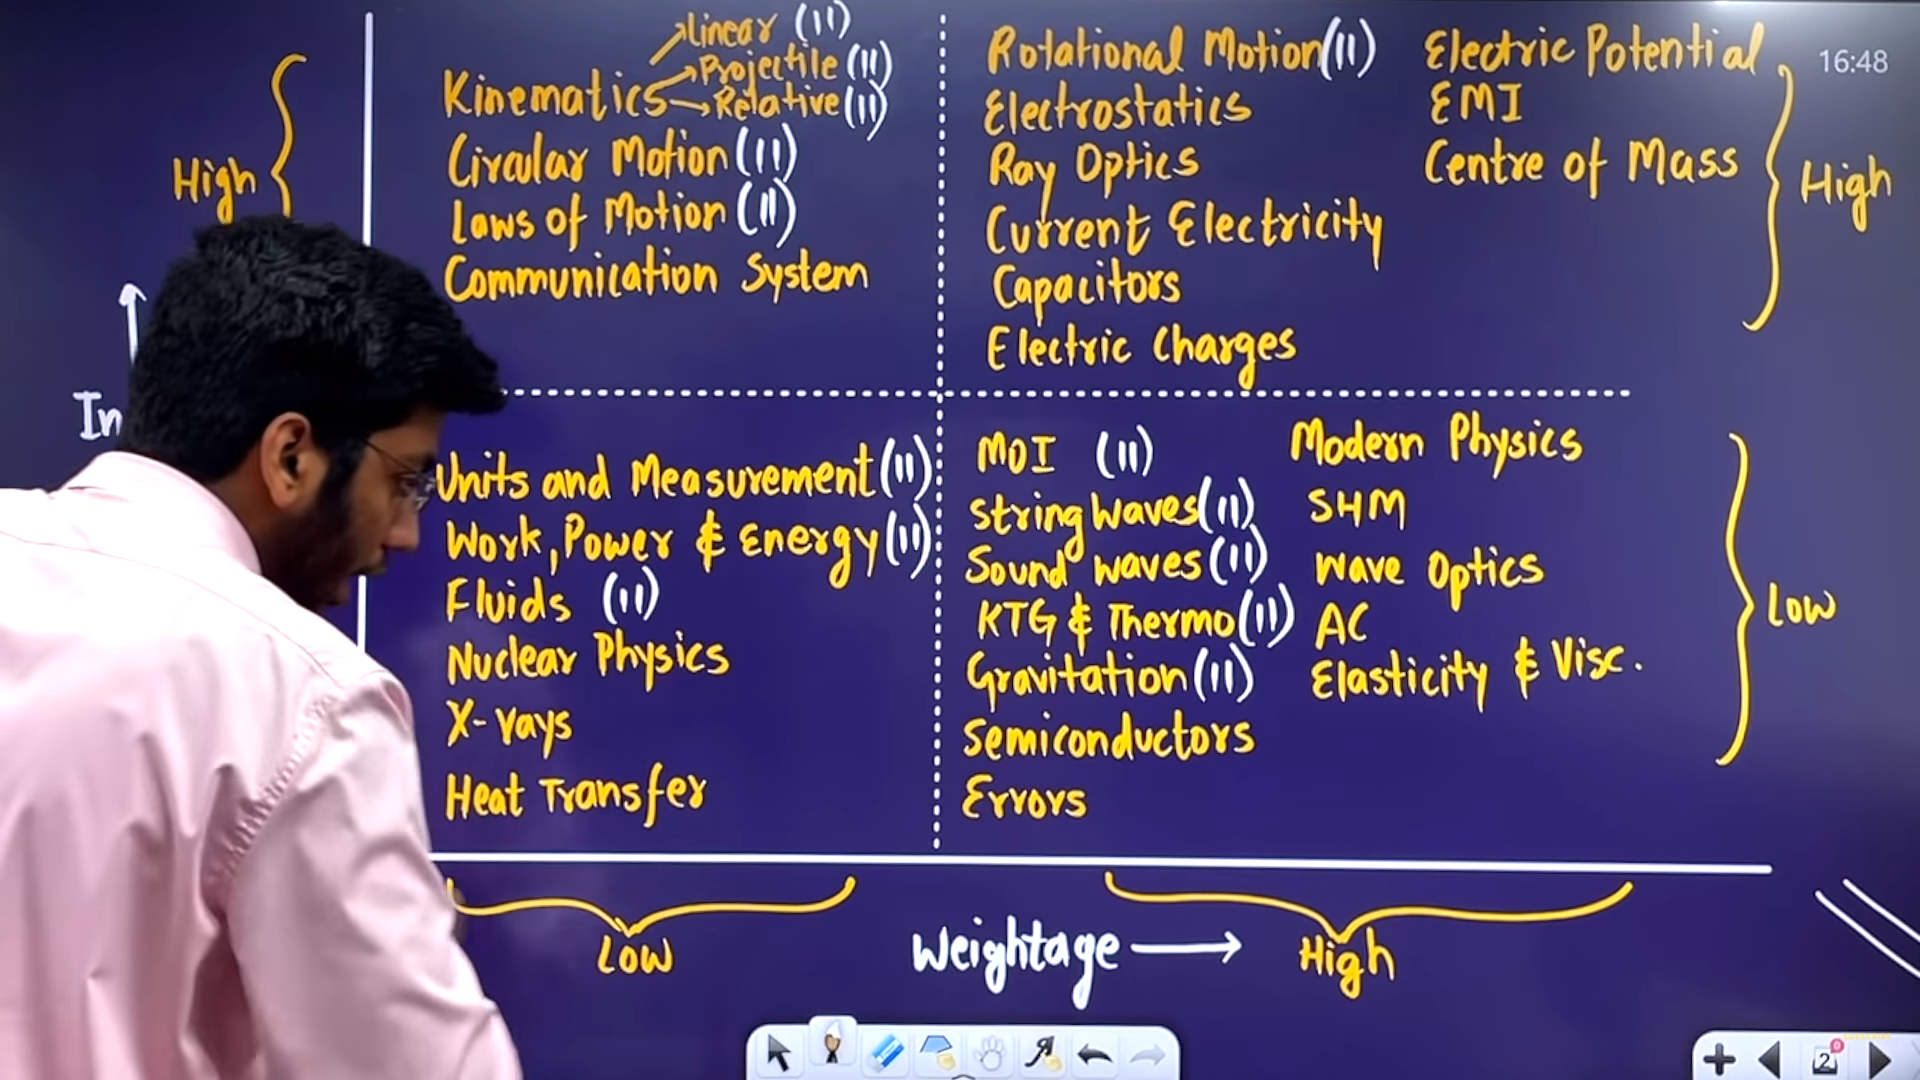 Linear (11)
Kinematics → Projectile (11)
→ Relative (11)
Circular Motion (11)
Laws of Motion (11)
Communication System
High
Rotational Motion (11)
Electrostatics
Ray Optics
Current Electricity
Capacitors
Electric Charges
Electric Potential
EMI
Centre of Mass
High
16:48
In
Units and Measurement (11)
Work, Power & Energy (11)
Fluids (11)
Nuclear Physics
X-rays
Heat Transfer
MOI (11)
String Waves (11)
Sound Waves (11)
KTG & Thermo (11)
Gravitation (11)
Semiconductors
Errors
Modern Physics
SHM
Wave Optics
AC
Elasticity & Visc.
Low
Low
Weightage →
High
2
0